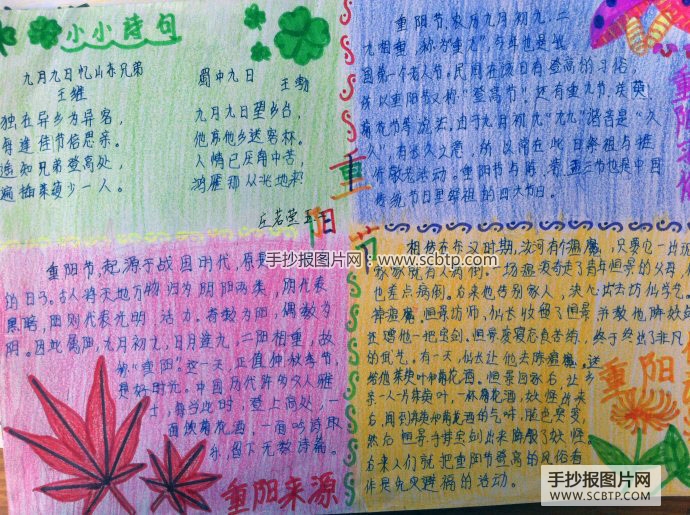 小小诗句
九月九日忆山东兄弟
王维
独在异乡为异客,
每逢佳节倍思亲。
遥知兄弟登高处,
遍插茱萸少一人。
蜀中九日
王勃
九月九日望乡台,
他席他乡送客杯。
人情已厌南中苦,
鸿雁那从北地来
重阳节,农历九月初九,二
九相重,称为"重九"
国第一个老人节,民间在该日有登高的习俗,
所以重阳节又称"登高节"。还有重九节、茱萸、
菊花节等说法。由于九月初九"九九"谐音是"久
久",有长久之意,所以常在此日祭祖与推
行敬老活动。重阳节与除、清、盂三节也是中国
传统节日里祭祖的四大节日。
重阳节
重阳节,起源于战国时代,原是
的日子。古人将天地万物归为阴阳两类,阴代表
黑暗,阳则代表光明、活力。奇数为阳,偶数为
阴。因此属阳,九月初九,日月逢九,二阳相重,故
称"重阳"。这一天,正值仲秋季节,
是好时光。中国历代许多文人雅
士,每当此时,登上高处,一
面饮菊花酒,一面吟诗取
乐,留下无数诗篇。
重阳来源
相传在东汉时期,汝河有个瘟魔,只要它一出现
家家就有人病倒。一场瘟疫夺走了青年恒景的父母,
也差点病倒。后来他告别家人,决心出去访仙学艺,
恒景访师,仙长收留了恒景并教他降妖剑
还赠他一把宝剑。恒景废寝忘食苦练,终于练出了非凡
的武艺。有一天,仙长让他去除瘟魔。送
给他茱萸叶和菊花酒。恒景回家后,让乡
亲一人一片茱萸叶,一杯菊花酒,妖怪出来
后,闻到茱萸和菊花酒的气味,脸色突变,
然后恒景手持宝剑出来降服了妖怪。
后来人们就把重阳节登高的风俗看
作是免灾避祸的活动。
重阳
手抄报图片网:www.scbtp.com
手抄报图片网
WWW.SCBTP.COM